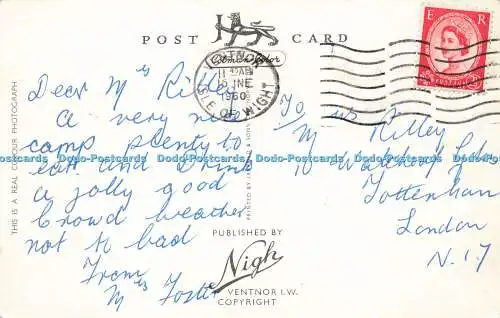 POST CARD
Colman Color
VENTNOR
11 15 AM
JNE
1960
ISLE OF WIGHT
E R
Dear Mrs Ritley
a very nice
camp plenty to
eat and Drink
a jolly good
Crowd weather
not to bad
From
Mrs Foster
To
Mrs Ritley
10
Tottenham
London
N.17
THIS IS A REAL COLOUR PHOTOGRAPH
PRINTED BY & SONS
PUBLISHED BY
Nigh
VENTNOR I.W.
COPYRIGHT
Dodo-Postcards Dodo-Postcards Dodo-Postcards Dodo-Postcards Dodo-Postcards